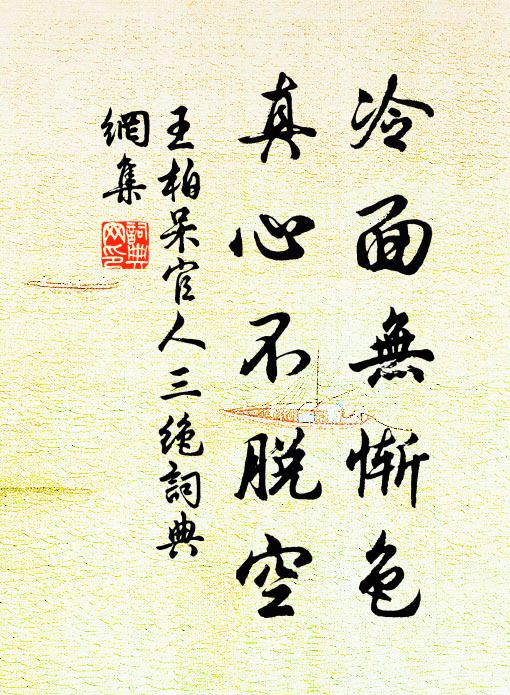 冷面無慚色
真心不脱空
王柏呆官人三絶詞典
網集
詞典网印